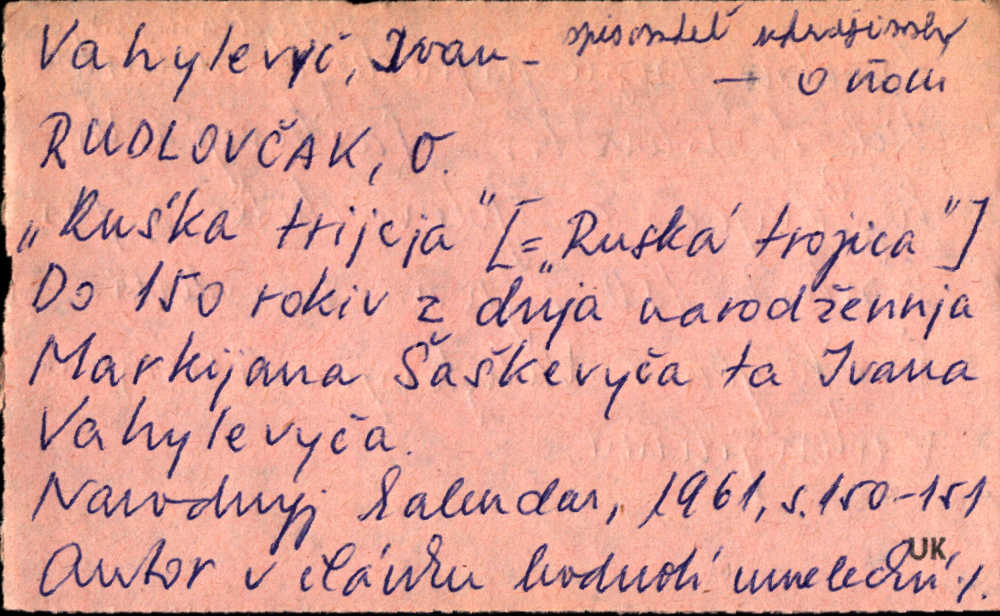 Vahylevyč, Ivan - spisovateľ ukrajinský
→ o ňom
RUDLOVČAK, O.
„Ruśka trijcja" [= „Ruská trojica"]
Do 150 rokiv z dnja narodžennja
Markijana Šaškevyča ta Ivana
Vahylevyča.
Narodnyj kalendar, 1961, s. 150-151
UK
Autor v článku hodnotí umeleckú ./.